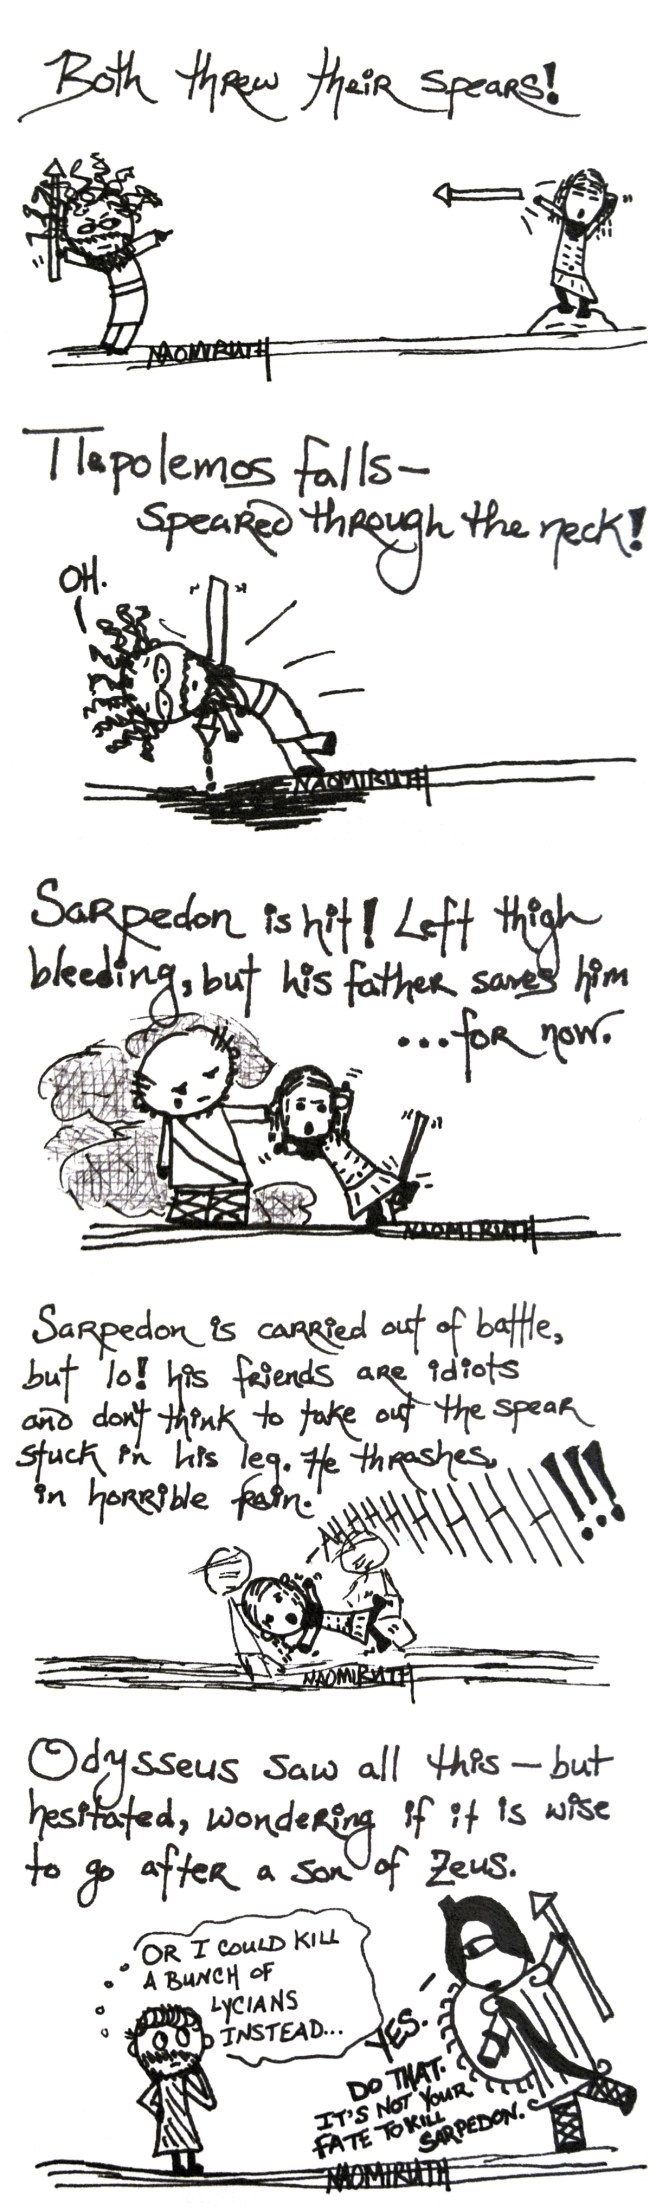 Both threw their spears!
NAOMIRUTH
Tlepolemos falls—
speared through the neck!
OH.
NAOMIRUTH
Sarpedon is hit! Left thigh
bleeding, but his father saves him
...for now.
NAOMIRUTH
Sarpedon is carried out of battle,
but lo! his friends are idiots
and don't think to take out the spear
stuck in his leg. He thrashes
in horrible pain.
AHHHHHHHHH!!!
NAOMIRUTH
Odysseus saw all this — but
hesitated, wondering if it is wise
to go after a son of Zeus.
OR I COULD KILL
A BUNCH OF
LYCIANS
INSTEAD...
YES.
DO THAT.
IT'S NOT YOUR
FATE TO KILL
SARPEDON.
NAOMIRUTH